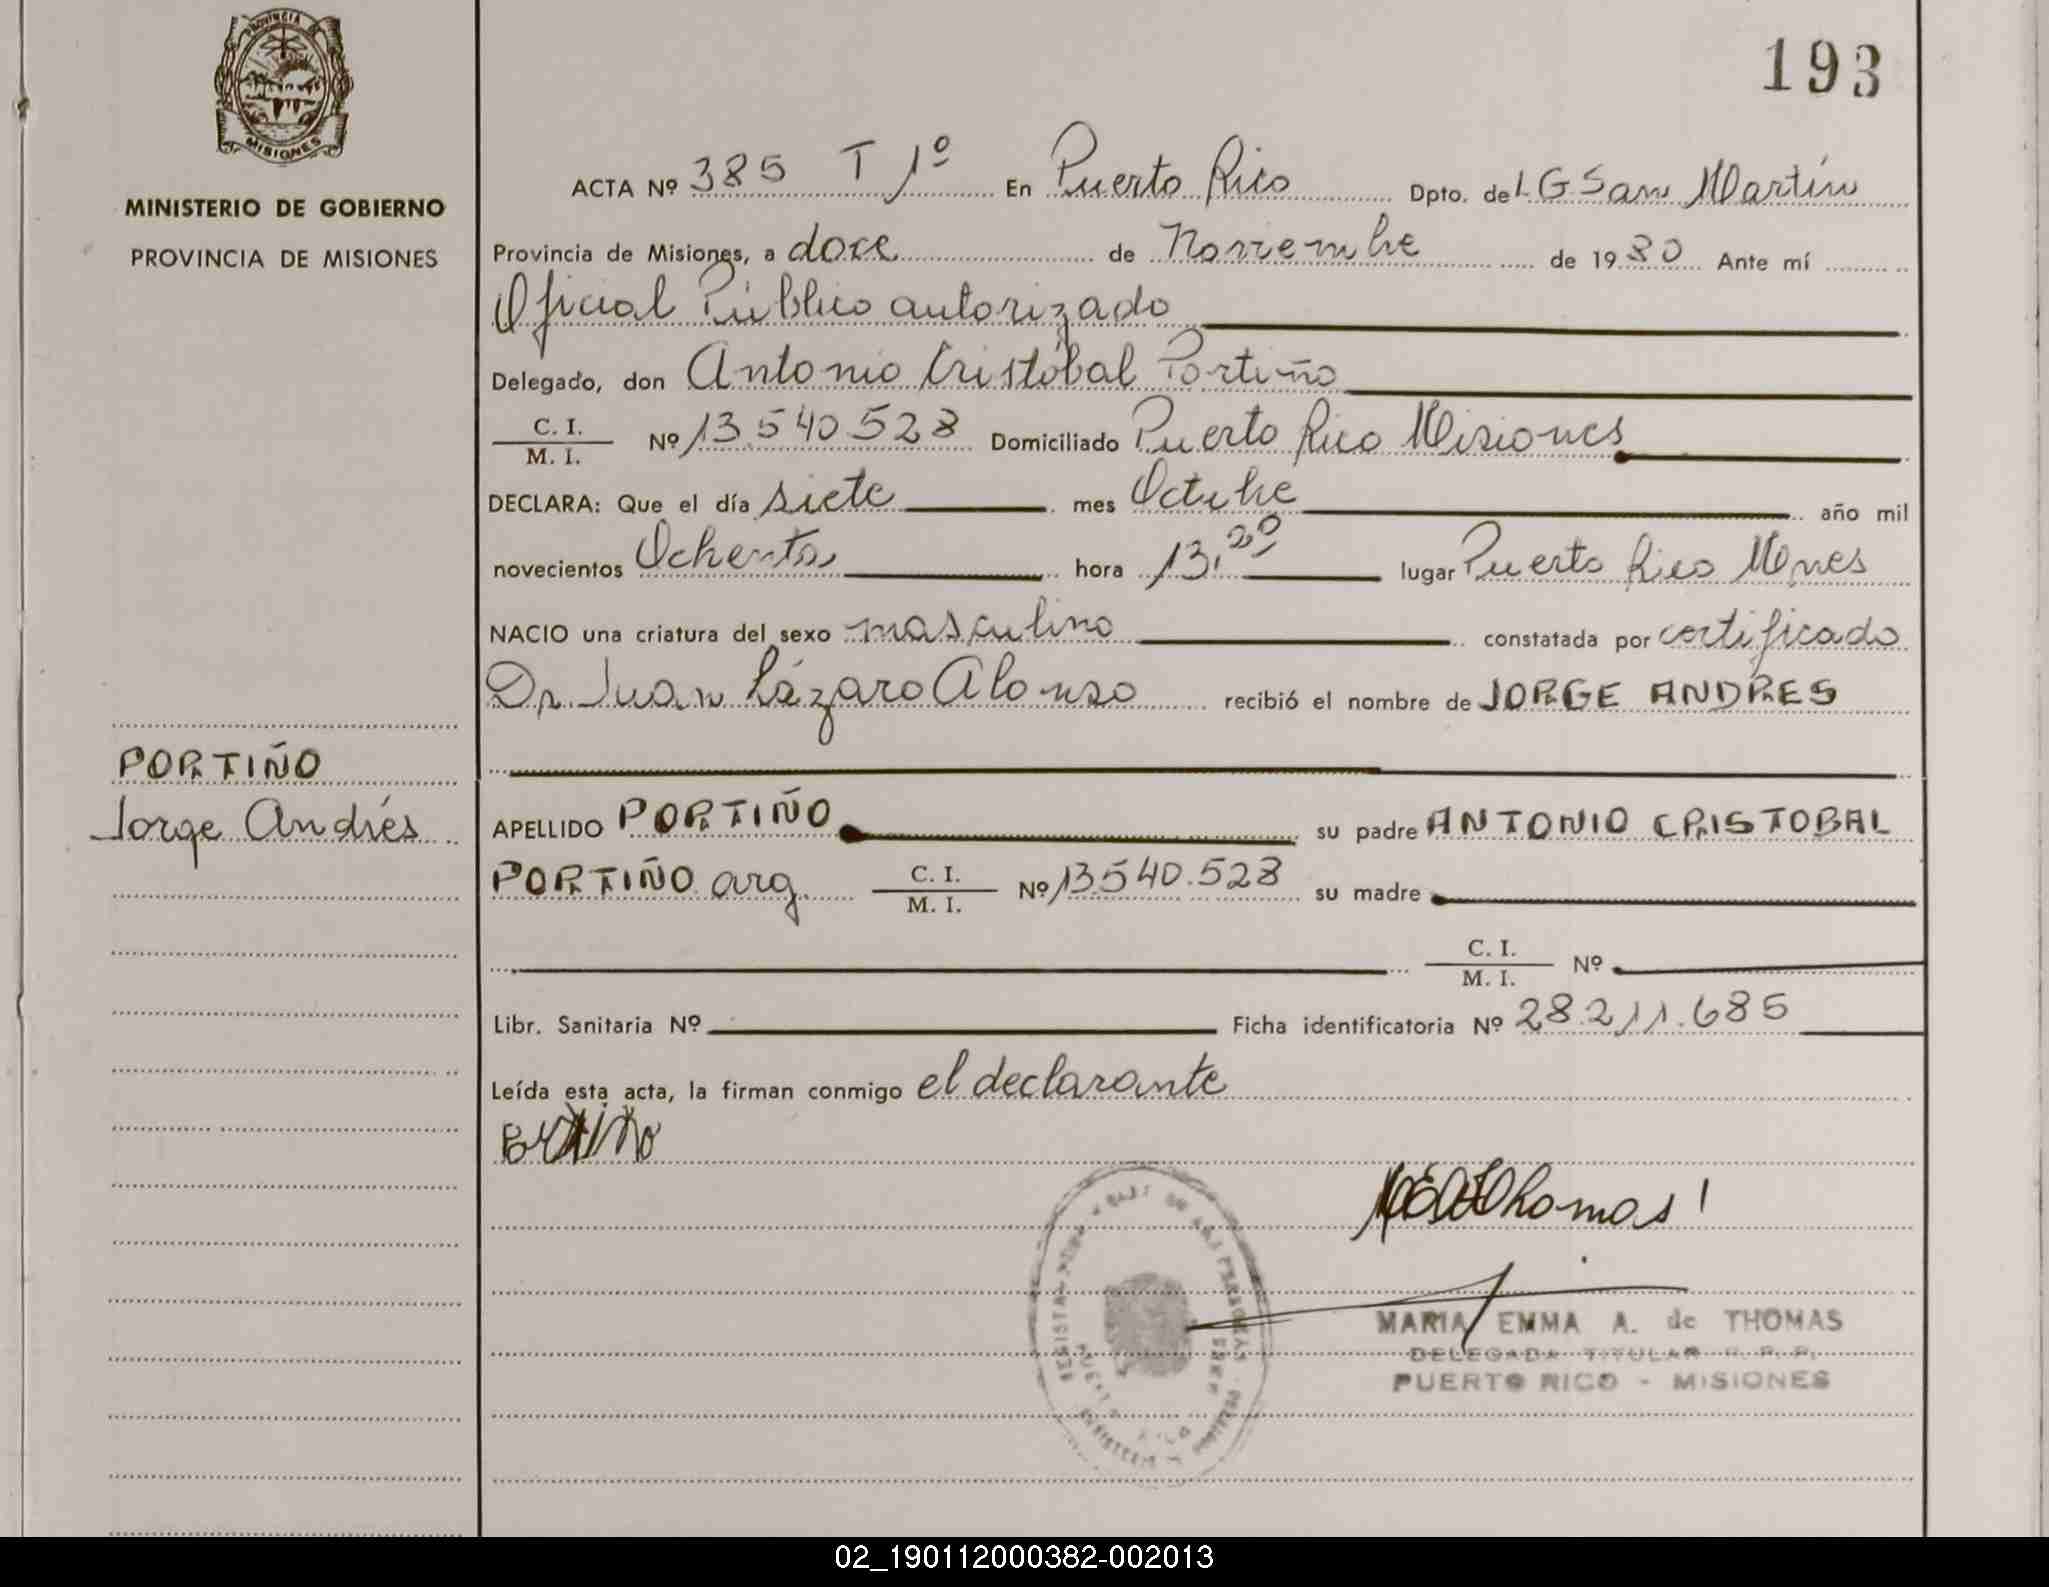 PROVINCIA DE
MISIONES
MINISTERIO DE GOBIERNO
PROVINCIA DE MISIONES
PORTIÑO
Jorge Andrés
193
ACTA Nº 385 T 1º En Puerto Rico Dpto. de L G San Martín
Provincia de Misiones, a doce de Noviembre de 1980 Ante mí
Oficial Público autorizado
Delegado, don Antonio Cristóbal Portiño
C. I.
M. I. Nº 13.540.528 Domiciliado Puerto Rico Misiones
DECLARA: Que el día siete mes Octubre año mil
novecientos Ochenta hora 13,20 lugar Puerto Rico Mnes
NACIO una criatura del sexo masculino constatada por certificado
Dr. Juan Lázaro Alonso recibió el nombre de JORGE ANDRES
APELLIDO PORTIÑO su padre ANTONIO CRISTOBAL
PORTIÑO arg. C. I.
M. I. Nº 13.540.528 su madre
C. I.
M. I. Nº
Libr. Sanitaria Nº Ficha identificatoria Nº 28.211.685
Leída esta acta, la firman conmigo el declarante
Portiño
Thomas
MARIA EMMA A. de THOMAS
DELEGADA TITULAR R. P. P.
PUERTO RICO - MISIONES
02_190112000382-002013